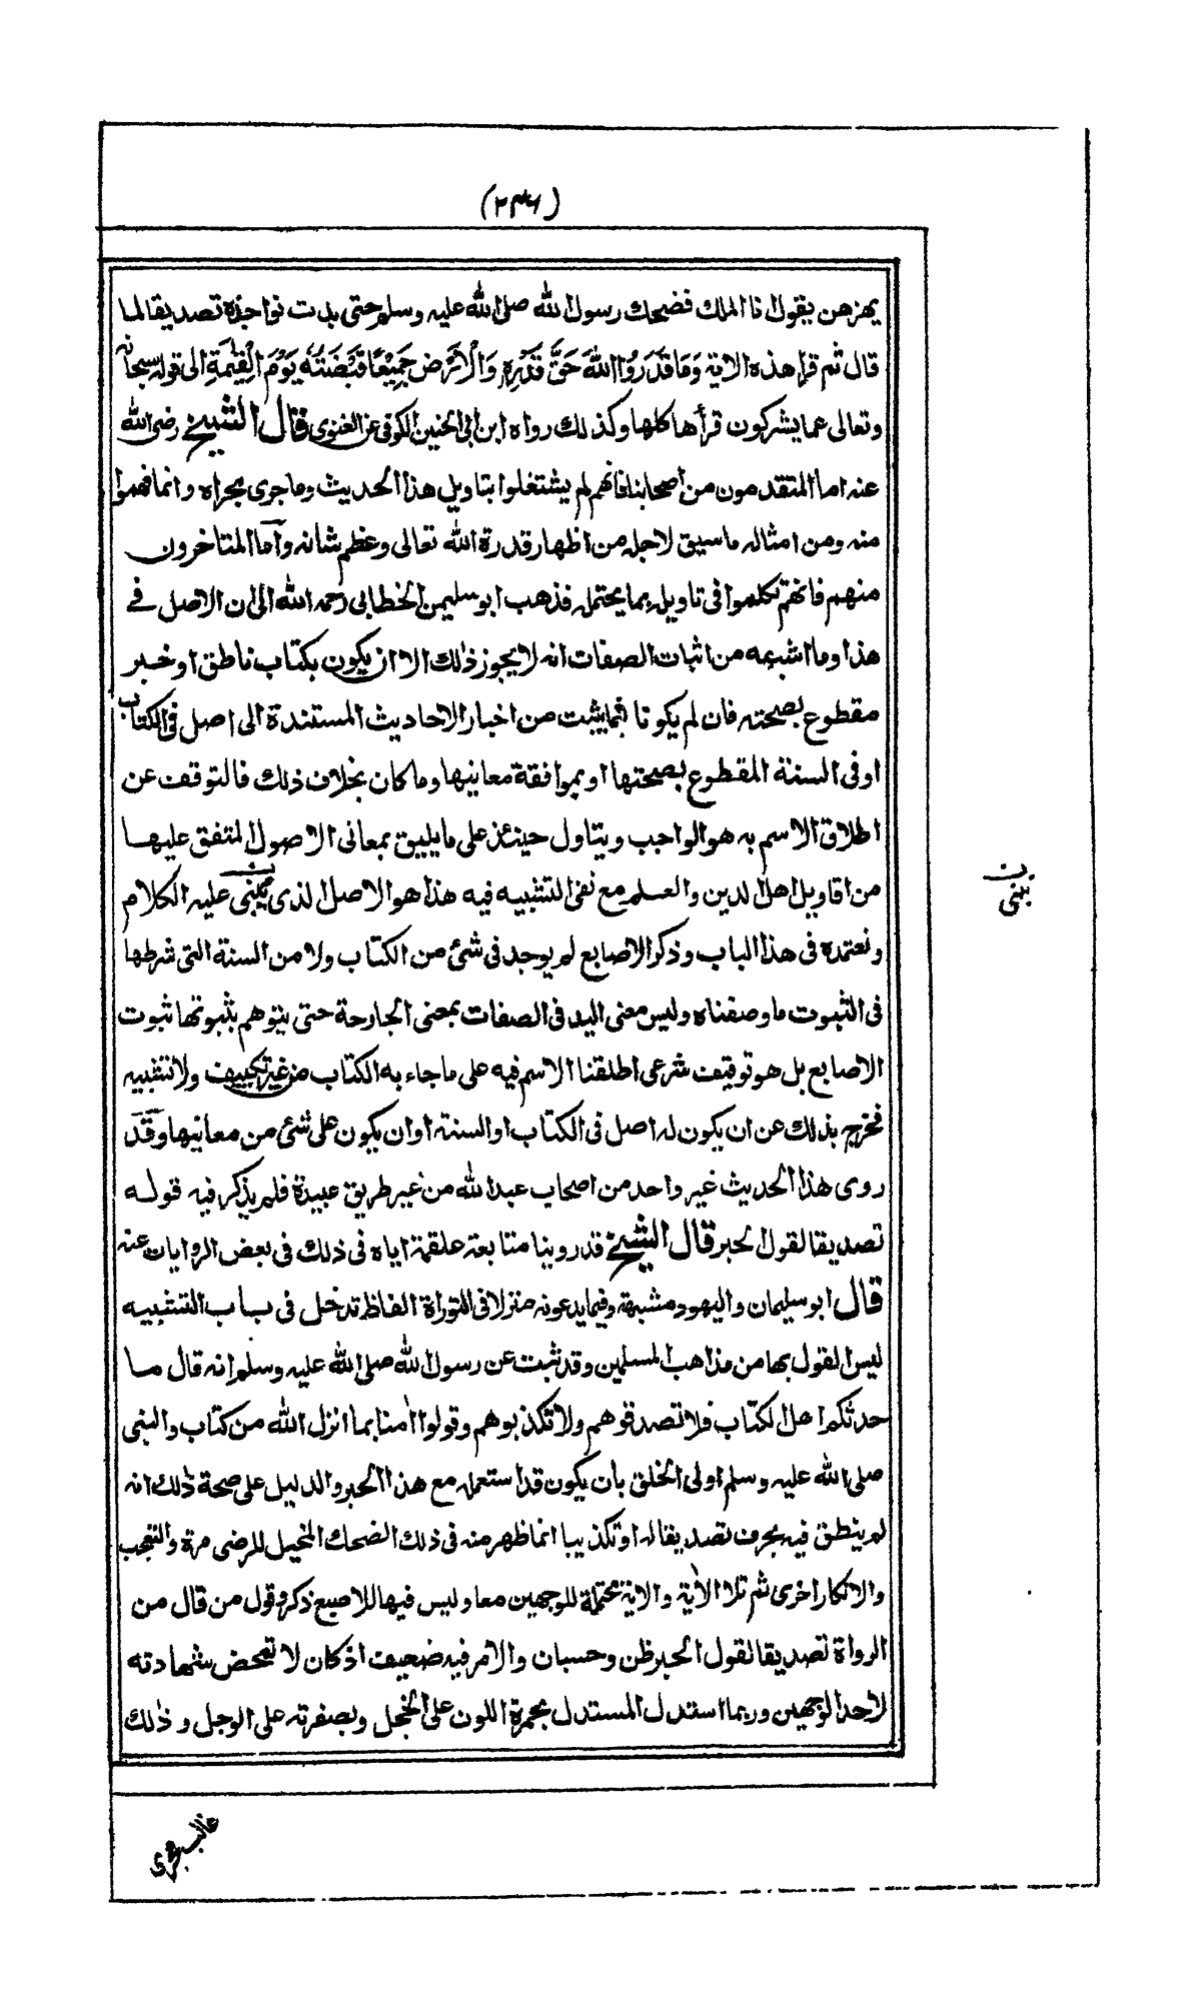 (٢٣٦)
يهزهن يقول انا الملك فضحك رسول الله صلى الله عليه وسلم حتى بدت نواجذه تصديقا لما
قال ثم قرا هذه الاية وَمَا قَدَرُوا اللّٰهَ حَقَّ قَدْرِهٖ وَالْاَرْضُ جَمِيْعًا قَبْضَتُهٗ يَوْمَ الْقِيٰمَةِ الى قوله سبحانه
وتعالى عما يشركون قرأها كلها وكذلك رواه ابن ابى الحنين الكوفى عن الغنوى قال الشيخ رضى الله
عنه اما المتقدمون من اصحابنا فانهم لم يشتغلوا بتاويل هذا الحديث وما جرى مجراه وانما فهموا
منه ومن امثاله ما سيق لاجله من اظهار قدرة الله تعالى وعظم شانه وأما المتاخرون
منهم فانهم تكلموا فى تاويله بما يحتمله فذهب ابو سليمن الخطابى رحمه الله الى ان الاصل فے
هذا وما اشبهه من اثبات الصفات انه لا يجوز ذٰلك الا ان يكون بكتاب ناطق او خبر
مقطوع بصحته فان لم يكونا فبما يثبت من اخبار الاحاديث المستندة الى اصل فى الكتاب
او فى السنة المقطوع بصحتها او بموافقة معانيها وما كان بخلاف ذلك فالتوقف عن
اطلاق الاسم به هو الواجب ويتاول حينئذ على ما يليق بمعانى الاصول المتفق عليها
من اقاويل اهل الدين والعلم مع نفى التشبيه فيه هذا هو الاصل الذى يبنى عليه الكلام
ن
نبنى
ونعتمده فى هذا الباب وذكر الاصابع لم يوجد فى شئ من الكتاب ولا من السنة التى شرطها
فى الثبوت ما وصفناه وليس معنى اليد فى الصفات بمعنى الجارحة حتى يتوهم بثبوتها ثبوت
الاصابع بل هو توقيف شرعى اطلقنا الاسم فيه على ما جاء به الكتاب من غير تكييف ولا تشبيه
فخرج بذلك عن ان يكون له اصل فى الكتاب او السنة او ان يكون على شئ من معانيها وقد
روى هذا الحديث غير واحد من اصحاب عبد الله من غير طريق عبيدة فلم يذكر فيه قوله
تصديقا لقول الحبر قال الشيخ قد روينا متابعة علقمة اياه فى ذلك فى بعض الروايات عنه
قال ابو سليمان واليهود مشبهة وفيما يدعونه منزلا فى التوراة الفاظ تدخل فى باب التشبيه
ليس القول بها من مذاهب المسلمين وقد ثبت عن رسول الله صلى الله عليه وسلم انه قال ما
حدثكم اهل الكتاب فلا تصدقوهم ولا تكذبوهم وقولوا اٰمنا بما انزل الله من كتاب والنبى
صلى الله عليه وسلم اولى الخلق بأن يكون قد استعمله مع هذا الحبر والدليل على صحة ذٰلك انه
لم ينطق فيه بحرف تصديقا له او تكذيبا انما ظهر منه فى ذلك الضحك المخيل للرضى مرة والتعجب
والانكار اخرى ثم تلا الأية والاية محتملة للوجهين معا وليس فيها للاصبع ذكر وقول من قال من
الرواة تصديقا لقول الحبر ظن وحسبان والامر فيه ضعيف اذ كان لا تمحض شهادته
لاحد الوجهين وربما استدل المستدل بحمرة اللون على الخجل وبصفرته على الوجل وذٰلك
غالب مجرى